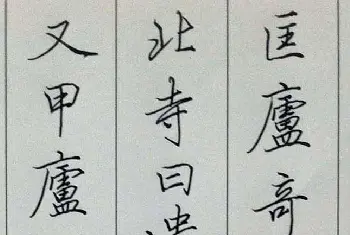 匡廬奇
北寺曰
又甲廬